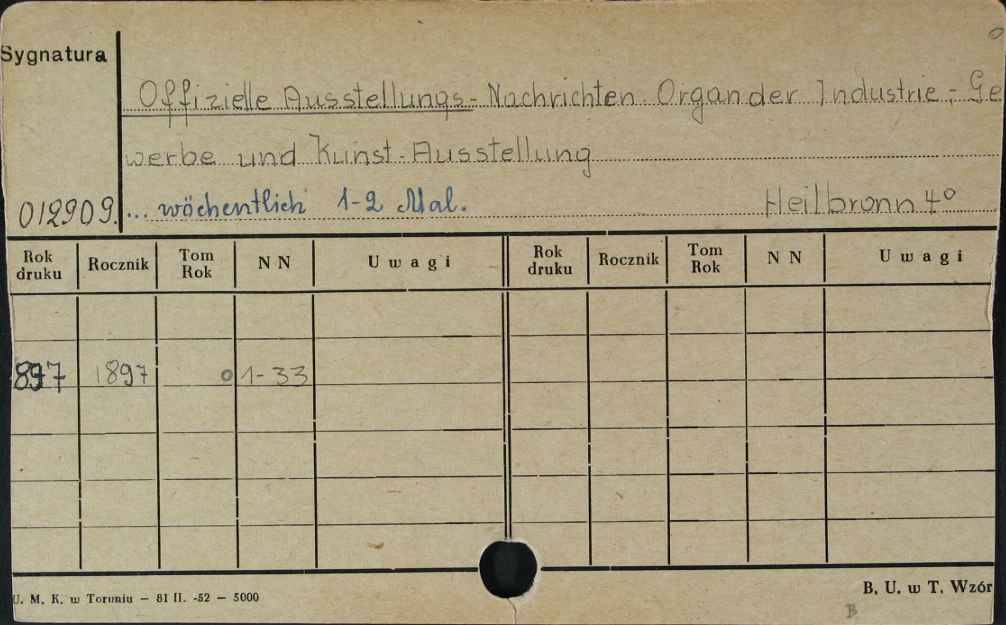 Sygnatura
Offizielle Ausstellungs-Nachrichten Organ der Industrie-, Ge
werbe und Kunst-Ausstellung
012909. ... wöchentlich 1-2 Mal. Heilbronn 4°
Rok druku Rocznik Tom Rok N N Uwagi Rok druku Rocznik Tom Rok N N Uwagi
897 1897 1-33
U. M. K. w Toruniu — 81 II. -52 — 5000 B. U. w T. Wzór
B